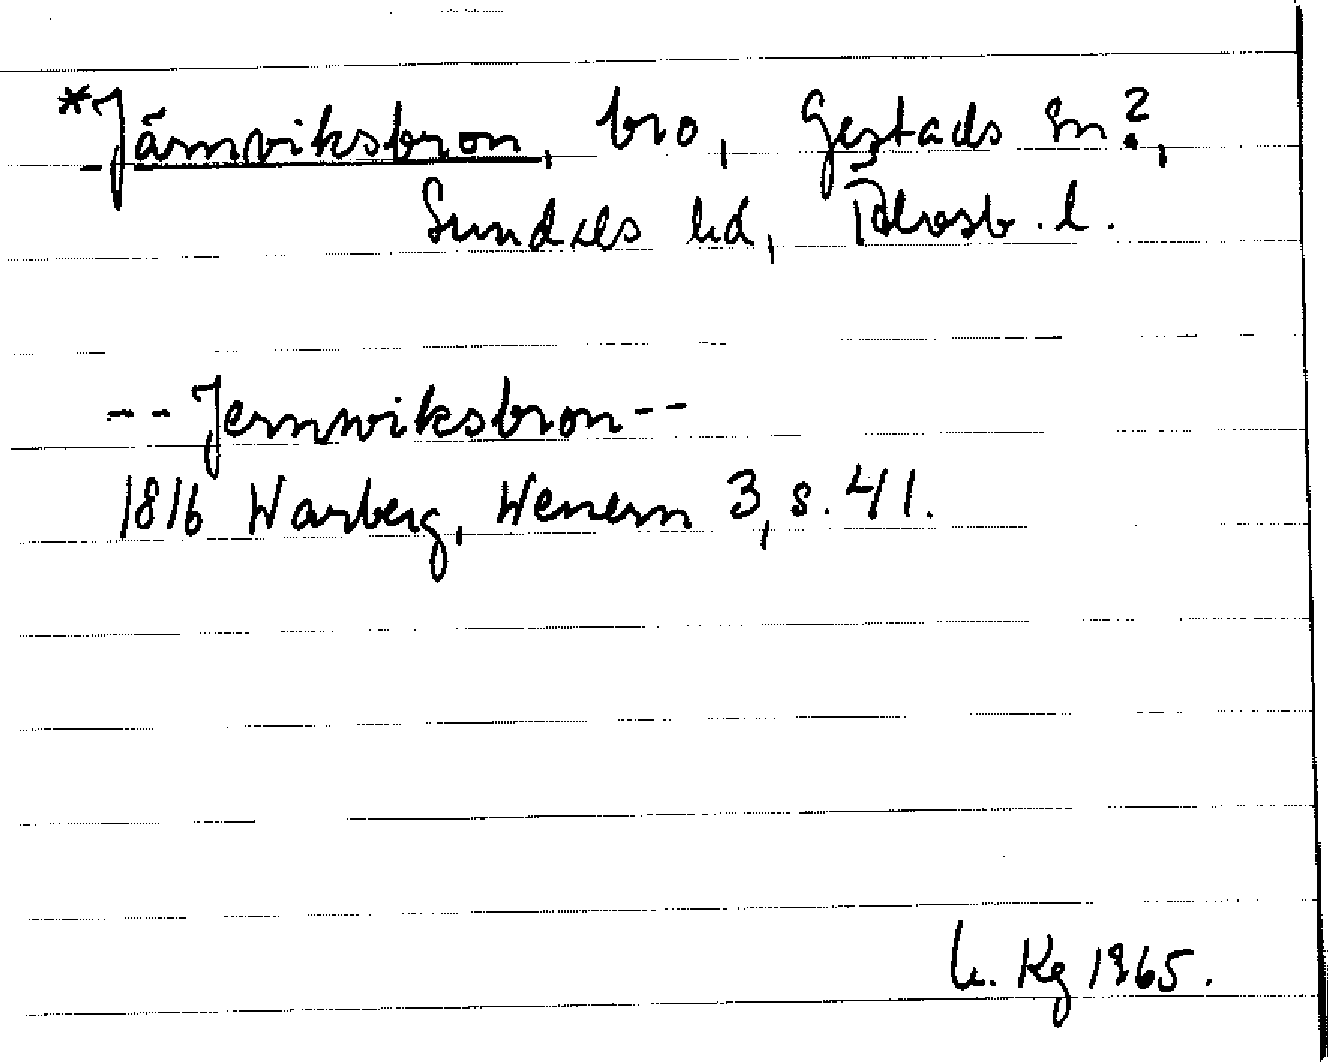 *Järnviksbron, bro, Gestads sn?,
Sundals hd, Älvsb. l.
-- Jernwiksbron --
1816 Warberg, Wenern 3, s. 41.
Kg 1965.